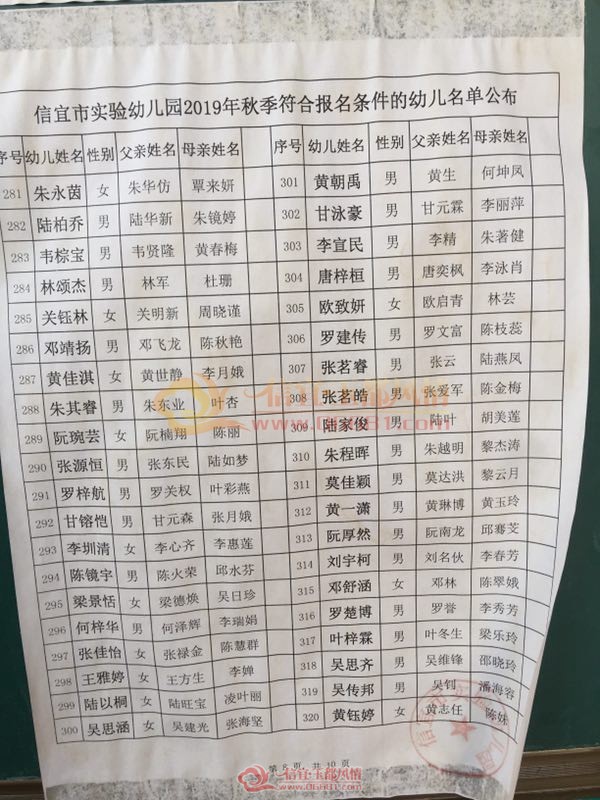 信宜市实验幼儿园2019年秋季符合报名条件的幼儿名单公布
序号 幼儿姓名 性别 父亲姓名 母亲姓名 序号 幼儿姓名 性别 父亲姓名 母亲姓名
281 朱永茵 女 朱华仿 覃来妍 301 黄朝禹 男 黄生 何坤凤
282 陆柏乔 男 陆华新 朱镜婷 302 甘泳豪 男 甘元霖 李丽萍
283 韦棕宝 男 韦贤隆 黄春梅 303 李宣民 男 李精 朱著健
284 林颂杰 男 林军 杜珊 304 唐梓桓 男 唐奕枫 李泳肖
285 关钰林 女 关明新 周晓谨 305 欧致妍 女 欧启青 林芸
286 邓靖扬 男 邓飞龙 陈秋艳 306 罗建传 男 罗文富 陈枝蕊
287 黄佳淇 女 黄世静 李月娥 307 张茗睿 男 张云 陆燕凤
288 朱其睿 男 朱东业 叶杏 308 张茗皓 男 张爱军 陈金梅
289 阮琬芸 女 阮楠翔 陈丽 309 陆家俊 男 陆叶 胡美莲
290 张源恒 男 张东民 陆如梦 310 朱程晖 男 朱越明 黎杰涛
291 罗梓航 男 罗关权 叶彩燕 311 莫佳颖 男 莫达洪 黎云月
292 甘镕恺 男 甘元森 张月娥 312 黄一潇 男 黄琳博 黄玉玲
293 李圳清 女 李心齐 李惠莲 313 阮厚然 男 阮南龙 邱骞芠
294 陈镜宇 男 陈火荣 邱水芬 314 刘宇柯 男 刘名伙 李春芳
295 梁景恬 女 梁德焕 吴日珍 315 邓舒涵 女 邓林 陈翠娥
296 何梓华 男 何泽辉 李瑞娟 316 罗楚博 男 罗誉 李秀芳
297 张佳怡 女 张禄金 陈慧群 317 叶梓霖 男 叶冬生 梁乐玲
298 王雅婷 女 王方生 李婵 318 吴思齐 男 吴维锋 邵晓玲
299 陆以桐 女 陆旺宝 凌叶丽 319 吴传邦 男 吴钊 潘海容
300 吴思涵 女 吴建光 张海坚 320 黄钰婷 女 黄志任 陈妹
第 8 页，共 10 页
信宜玉都风情
www.co081.com